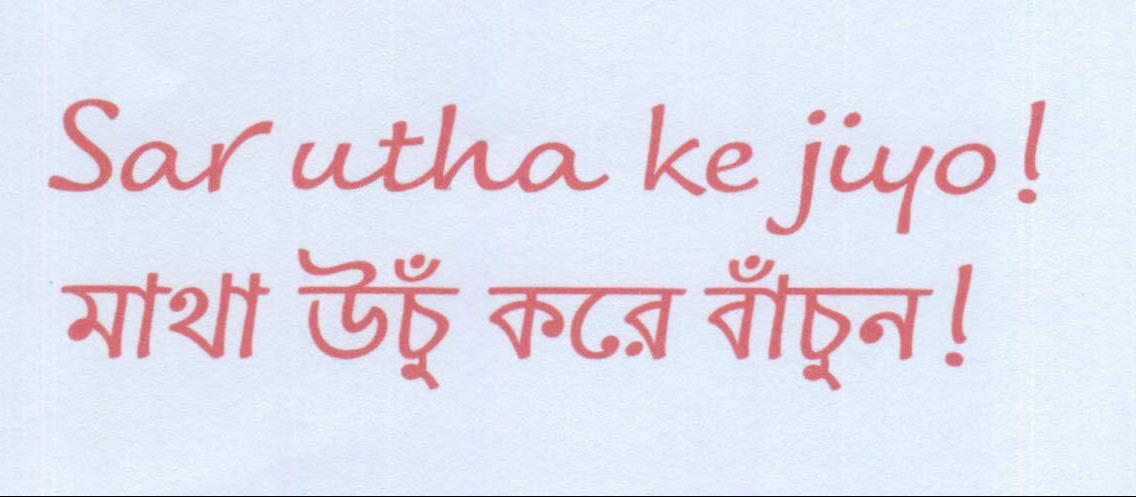 Sar utha ke jiyo!
মাথা উচুঁ করে বাঁচুন!